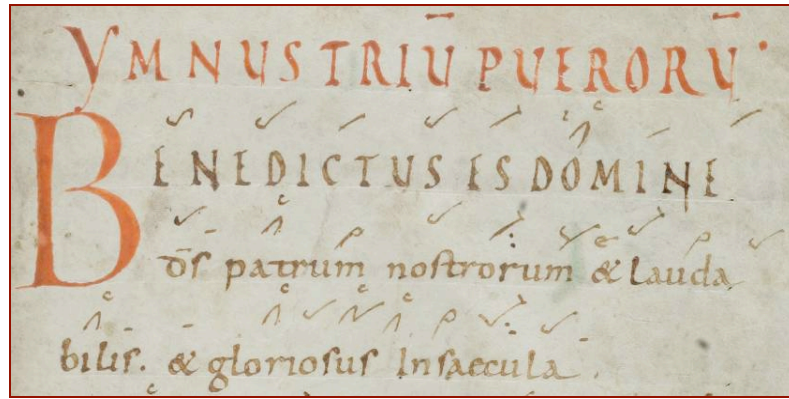 YMNUS TRIŪ PUERORŪ.
BENEDICTUS ES DOMINE
dſ̄ patrum noſtrorum & lauda
biliſ. & glorioſuſ Inſaecula.